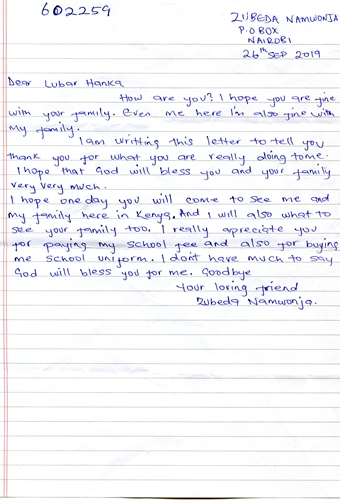 602259
ZUBEDA NAMWONJA
P.O BOX
NAIROBI
26th SEP 2019
Dear Lubar Hanka.
How are you? I hope you are fine
with your family. Even me here I'm also fine with
my family.
I am writting this letter to tell you
thank you for what you are really doing to me.
I hope that God will bless you and your family
very very much.
I hope one day you will come to see me and
my family here in Kenya. And I will also what to
see your family too. I really apreciate you
for paying my school fee and also for buying
me school uniform. I don't have much to say
God will bless you for me. Goodbye
Your loving friend
Zubeda Namwonja.